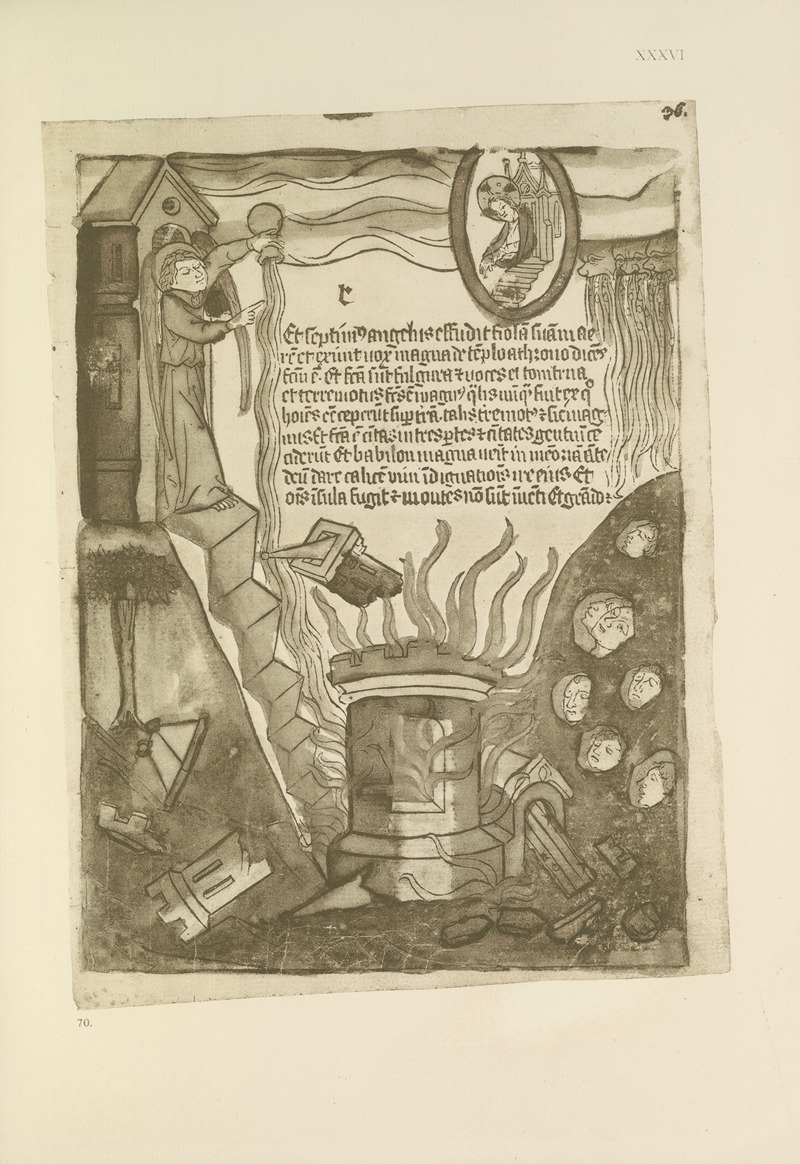 XXXVI
36.
r
Et septim⁹ angelus effudit fiolā suā in ae
rē et exiuit uox magna de tēplo a throno dicēs
fcm̄ ē. Et fcā sūt fulgura ⁊ uoces et tonitrua
et terremotus fcs ē magn⁹ q̄lis nūq̄ fuit ex q̊
hoīes cēceperūt sup trā. talis tremot⁹ ⁊ sic mag
nus Et fcā ē ciītas in tres ptes ⁊ ciītates gentiū ce
ciderūt Et babilon magna uēit in mēoriā āte
deū dare calicē vini īdignatiōis ire eius Et
oīs īsula fugit ⁊ montes nō sūt iūēti Et grādo
70.